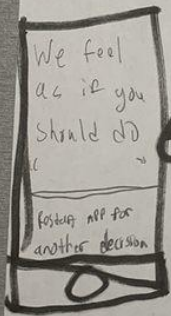 We feel
as if you
should do
"          "
Restart app for
another decision